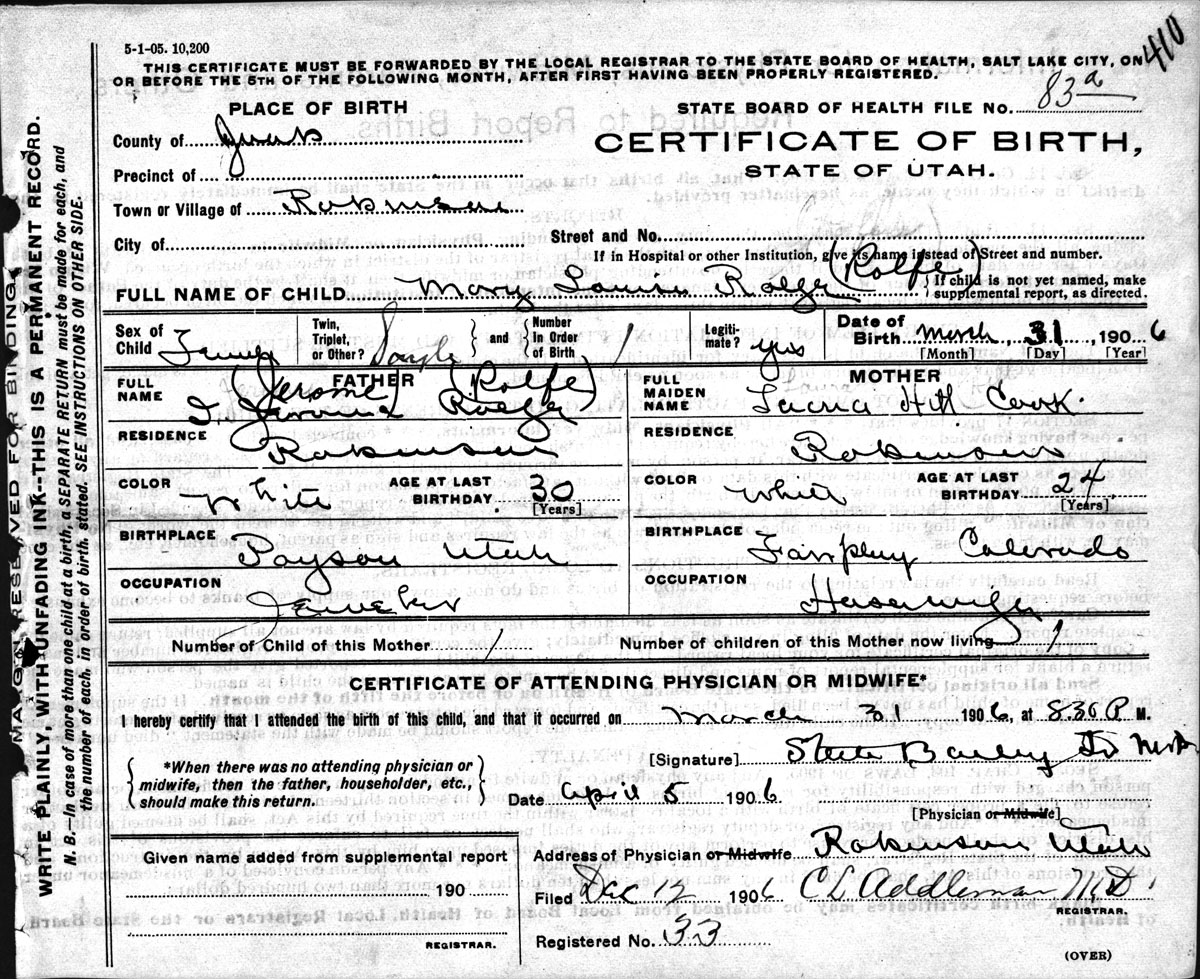 5-1-05. 10,200
410
THIS CERTIFICATE MUST BE FORWARDED BY THE LOCAL REGISTRAR TO THE STATE BOARD OF HEALTH, SALT LAKE CITY, ON
OR BEFORE THE 5TH OF THE FOLLOWING MONTH, AFTER FIRST HAVING BEEN PROPERLY REGISTERED.
PLACE OF BIRTH
STATE BOARD OF HEALTH FILE NO. 83a
County of Juab
CERTIFICATE OF BIRTH,
Precinct of
STATE OF UTAH.
Town or Village of Robinson
City of
Street and No.
If in Hospital or other Institution, give its name instead of Street and number.
FULL NAME OF CHILD Mary Louise Rolfe (Rolfe)
{If child is not yet named, make
supplemental report, as directed.
Sex of
Child
Twin,
Triplet,
or Other?
} and {
Number
In Order
of Birth 1
Legiti-
mate? yes
Date of
Birth March 31, 1906
[Month] [Day] [Year]
FULL
NAME
FATHER
(Jerome) (Rolfe)
FULL
MAIDEN
NAME
MOTHER
Hill Cook.
RESIDENCE
Robinson
RESIDENCE
Robinson
COLOR White
AGE AT LAST
BIRTHDAY 30
[Years]
COLOR White
AGE AT LAST
BIRTHDAY 24
[Years]
BIRTHPLACE
Payson Utah
BIRTHPLACE
Fairplay Colorado
OCCUPATION
Jeweler
OCCUPATION
Housewife
Number of Child of this Mother 1
Number of children of this Mother now living 1
CERTIFICATE OF ATTENDING PHYSICIAN OR MIDWIFE*
I hereby certify that I attended the birth of this child, and that it occurred on March 31 1906, at 8.30 P M.
{*When there was no attending physician or
midwife, then the father, householder, etc.,
should make this return.}
[Signature] Steele Bailey Jr
Date April 5 1906
[Physician or Midwife]
Given name added from supplemental report
190
REGISTRAR.
Address of Physician or Midwife Robinson Utah
Filed Dec 12 1906 C L Addleman MD
REGISTRAR.
Registered No. 33
(OVER)
MARGIN RESERVED FOR BINDING.
WRITE PLAINLY, WITH UNFADING INK--THIS IS A PERMANENT RECORD.
N. B.--In case of more than one child at a birth, a SEPARATE RETURN must be made for each, and
the number of each, in order of birth, stated. SEE INSTRUCTIONS ON OTHER SIDE.